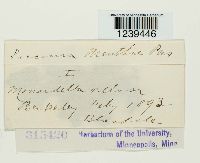 1239446
Puccinia Menthae Pers
I
Monardella villosa
Berkeley July 1893
Blasdale
315420 Herbarium of the University,
Minneapolis, Minn.